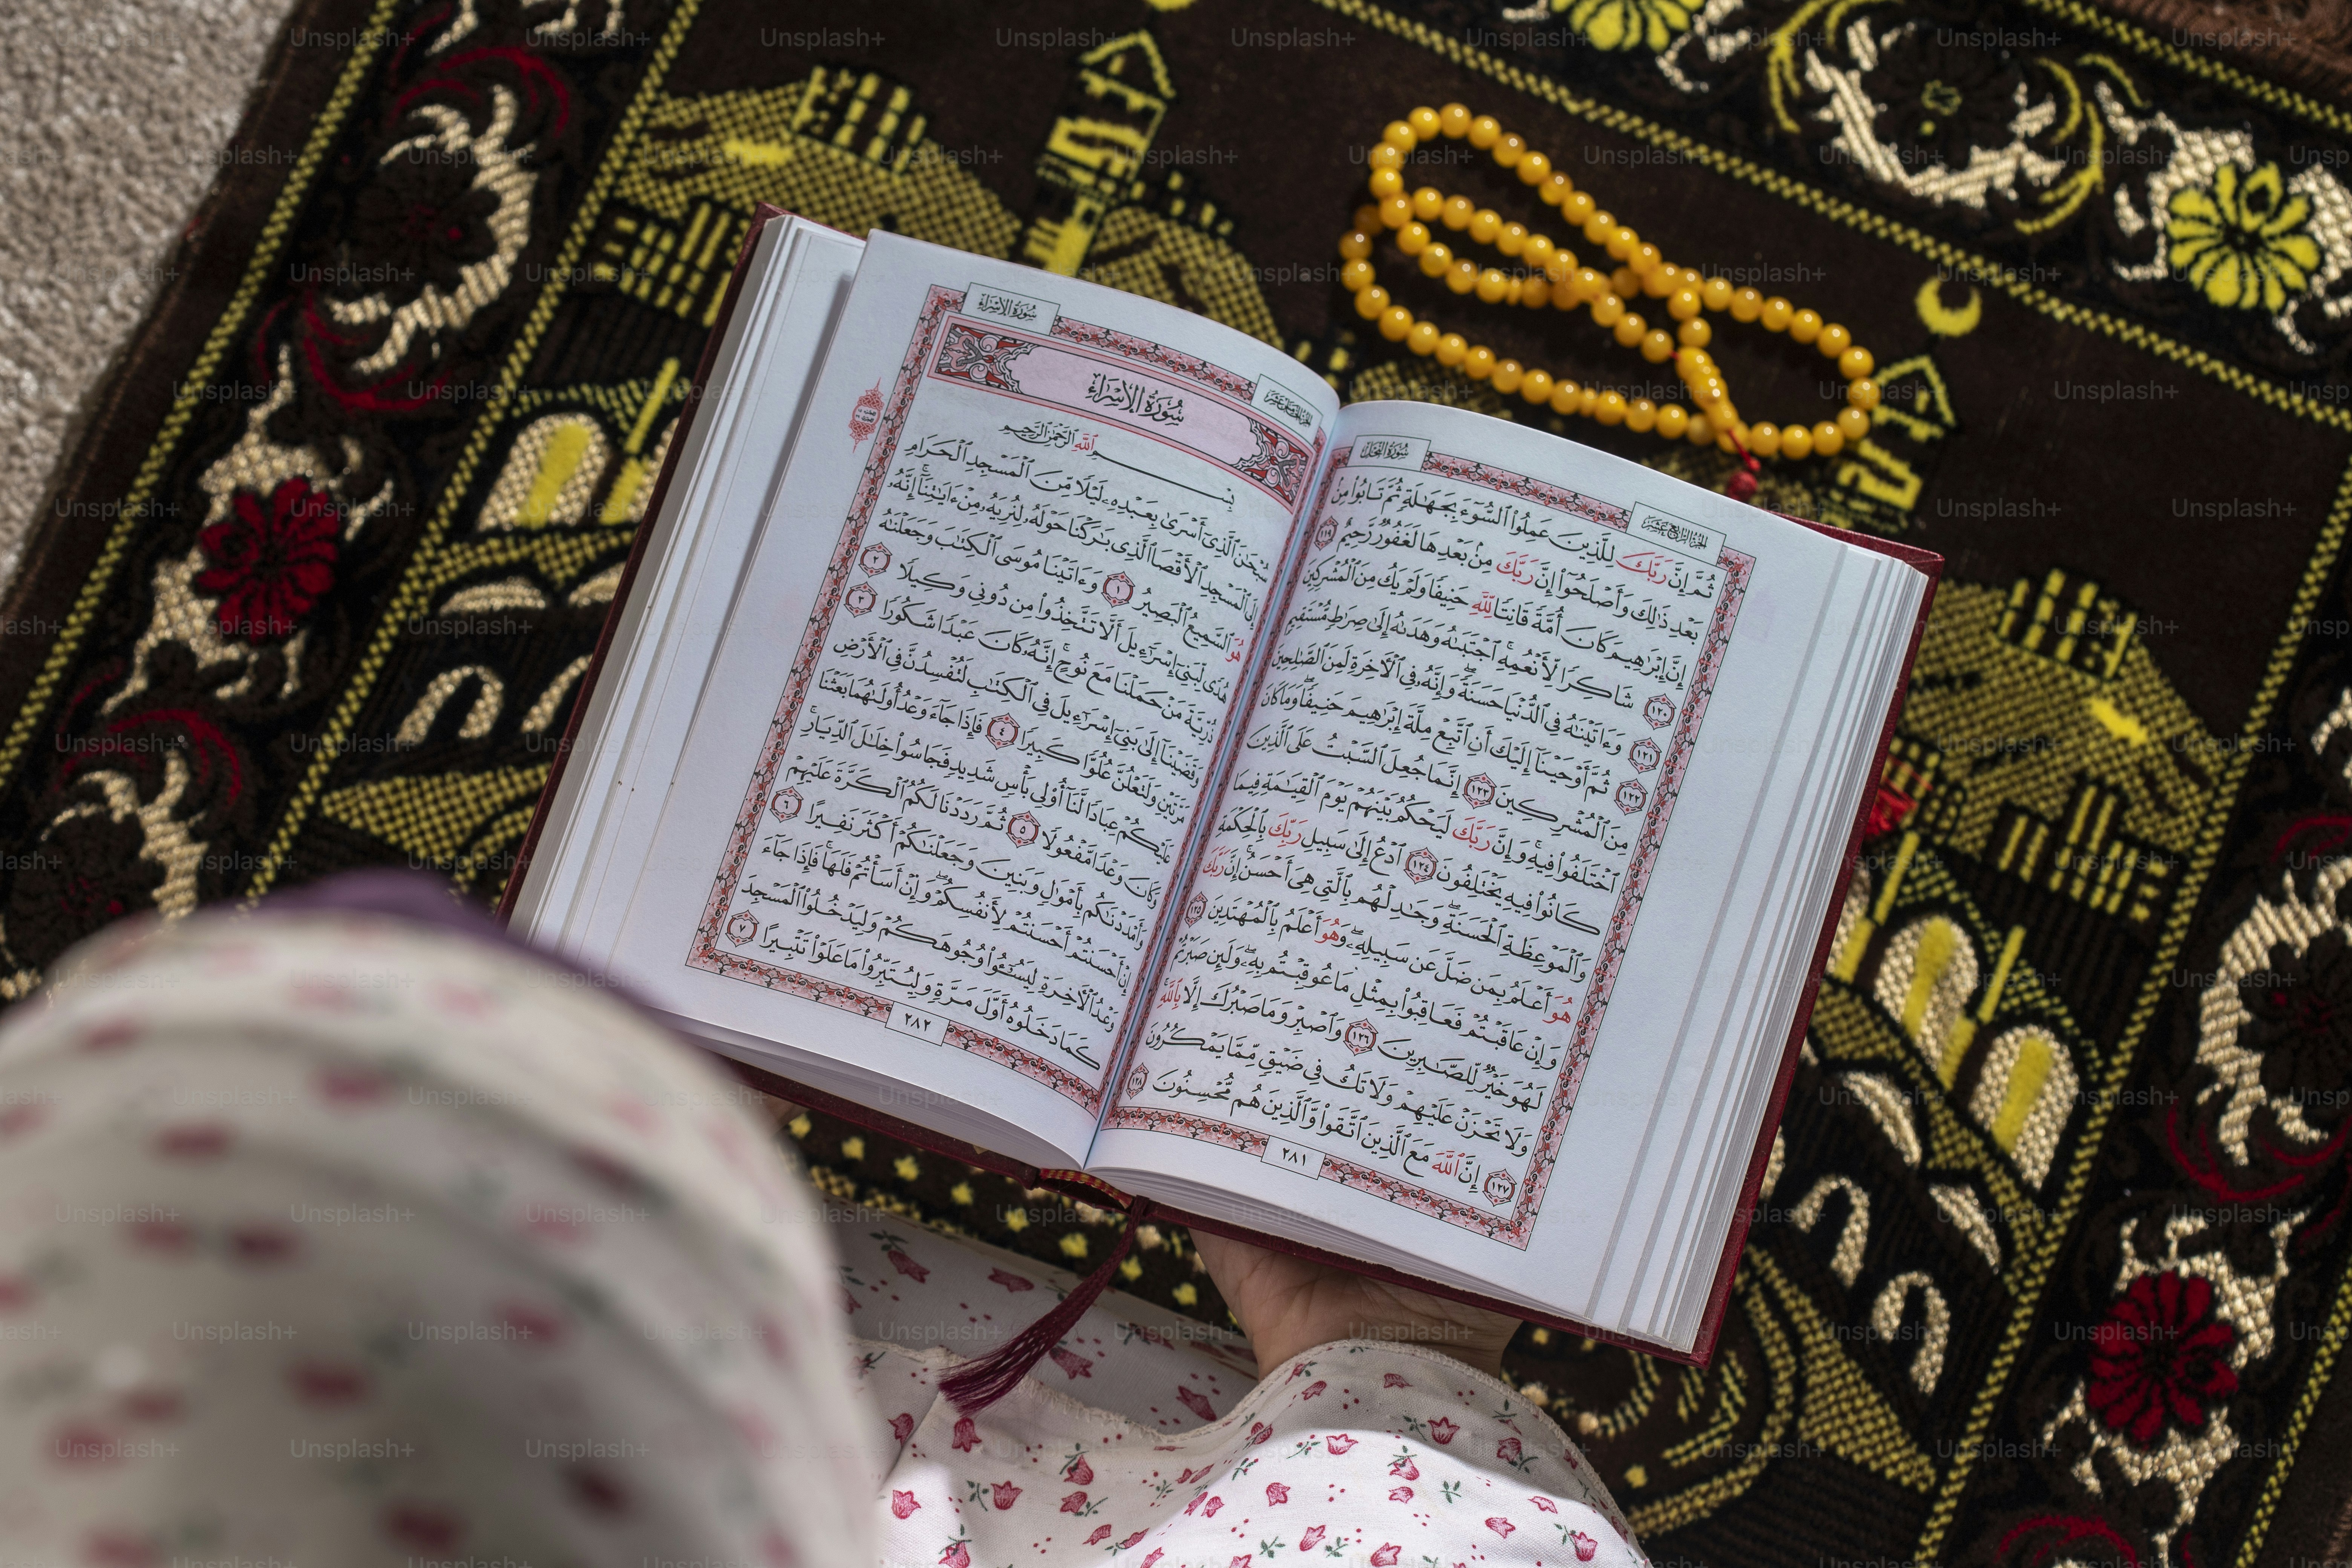 سُورَةُ النَّحْلِ
الجُزْءُ الرَّابِعَ عَشَرَ
ثُمَّ إِنَّ رَبَّكَ لِلَّذِينَ عَمِلُوا۟ ٱلسُّوٓءَ بِجَهَٰلَةٍ ثُمَّ تَابُوا۟ مِنۢ
بَعْدِ ذَٰلِكَ وَأَصْلَحُوٓا۟ إِنَّ رَبَّكَ مِنۢ بَعْدِهَا لَغَفُورٌ رَّحِيمٌ ١١٩
إِنَّ إِبْرَٰهِيمَ كَانَ أُمَّةً قَانِتًا لِّلَّهِ حَنِيفًا وَلَمْ يَكُ مِنَ ٱلْمُشْرِكِينَ
١٢٠ شَاكِرًا لِّأَنْعُمِهِ ۚ ٱجْتَبَىٰهُ وَهَدَىٰهُ إِلَىٰ صِرَٰطٍ مُّسْتَقِيمٍ
١٢١ وَءَاتَيْنَٰهُ فِى ٱلدُّنْيَا حَسَنَةً ۖ وَإِنَّهُۥ فِى ٱلْءَاخِرَةِ لَمِنَ ٱلصَّٰلِحِينَ
١٢٢ ثُمَّ أَوْحَيْنَآ إِلَيْكَ أَنِ ٱتَّبِعْ مِلَّةَ إِبْرَٰهِيمَ حَنِيفًا ۖ وَمَا كَانَ
مِنَ ٱلْمُشْرِكِينَ ١٢٣ إِنَّمَا جُعِلَ ٱلسَّبْتُ عَلَى ٱلَّذِينَ
ٱخْتَلَفُوا۟ فِيهِ ۚ وَإِنَّ رَبَّكَ لَيَحْكُمُ بَيْنَهُمْ يَوْمَ ٱلْقِيَٰمَةِ فِيمَا
كَانُوا۟ فِيهِ يَخْتَلِفُونَ ١٢٤ ٱدْعُ إِلَىٰ سَبِيلِ رَبِّكَ بِٱلْحِكْمَةِ
وَٱلْمَوْعِظَةِ ٱلْحَسَنَةِ ۖ وَجَٰدِلْهُم بِٱلَّتِى هِىَ أَحْسَنُ ۚ إِنَّ رَبَّكَ
هُوَ أَعْلَمُ بِمَن ضَلَّ عَن سَبِيلِهِۦ ۖ وَهُوَ أَعْلَمُ بِٱلْمُهْتَدِينَ ١٢٥
وَإِنْ عَاقَبْتُمْ فَعَاقِبُوا۟ بِمِثْلِ مَا عُوقِبْتُم بِهِۦ ۖ وَلَئِن صَبَرْتُمْ
لَهُوَ خَيْرٌ لِّلصَّٰبِرِينَ ١٢٦ وَٱصْبِرْ وَمَا صَبْرُكَ إِلَّا بِٱللَّهِ ۚ
وَلَا تَحْزَنْ عَلَيْهِمْ وَلَا تَكُ فِى ضَيْقٍ مِّمَّا يَمْكُرُونَ
١٢٧ إِنَّ ٱللَّهَ مَعَ ٱلَّذِينَ ٱتَّقَوا۟ وَّٱلَّذِينَ هُم مُّحْسِنُونَ ١٢٨
٢٨١
الجُزْءُ الخَامِسَ عَشَرَ
سُورَةُ الإِسْرَاءِ
سُورَةُ الإِسْرَاءِ
بِسْمِ ٱللَّهِ ٱلرَّحْمَٰنِ ٱلرَّحِيمِ
سُبْحَٰنَ ٱلَّذِىٓ أَسْرَىٰ بِعَبْدِهِۦ لَيْلًا مِّنَ ٱلْمَسْجِدِ ٱلْحَرَامِ
إِلَى ٱلْمَسْجِدِ ٱلْأَقْصَا ٱلَّذِى بَٰرَكْنَا حَوْلَهُۥ لِنُرِيَهُۥ مِنْ ءَايَٰتِنَآ ۚ إِنَّهُۥ
هُوَ ٱلسَّمِيعُ ٱلْبَصِيرُ ١ وَءَاتَيْنَا مُوسَى ٱلْكِتَٰبَ وَجَعَلْنَٰهُ
هُدًى لِّبَنِىٓ إِسْرَٰٓءِيلَ أَلَّا تَتَّخِذُوا۟ مِن دُونِى وَكِيلًا ٢
ذُرِّيَّةَ مَنْ حَمَلْنَا مَعَ نُوحٍ ۚ إِنَّهُۥ كَانَ عَبْدًا شَكُورًا ٣
وَقَضَيْنَآ إِلَىٰ بَنِىٓ إِسْرَٰٓءِيلَ فِى ٱلْكِتَٰبِ لَتُفْسِدُنَّ فِى ٱلْأَرْضِ
مَرَّتَيْنِ وَلَتَعْلُنَّ عُلُوًّا كَبِيرًا ٤ فَإِذَا جَآءَ وَعْدُ أُولَىٰهُمَا بَعَثْنَا
عَلَيْكُمْ عِبَادًا لَّنَآ أُو۟لِى بَأْسٍ شَدِيدٍ فَجَاسُوا۟ خِلَٰلَ ٱلدِّيَارِ ۚ
وَكَانَ وَعْدًا مَّفْعُولًا ٥ ثُمَّ رَدَدْنَا لَكُمُ ٱلْكَرَّةَ عَلَيْهِمْ
وَأَمْدَدْنَٰكُم بِأَمْوَٰلٍ وَبَنِينَ وَجَعَلْنَٰكُمْ أَكْثَرَ نَفِيرًا ٦
إِنْ أَحْسَنتُمْ أَحْسَنتُمْ لِأَنفُسِكُمْ ۖ وَإِنْ أَسَأْتُمْ فَلَهَا ۚ فَإِذَا جَآءَ
وَعْدُ ٱلْءَاخِرَةِ لِيَسُۥٓـُٔوا۟ وُجُوهَكُمْ وَلِيَدْخُلُوا۟ ٱلْمَسْجِدَ
كَمَا دَخَلُوهُ أَوَّلَ مَرَّةٍ وَلِيُتَبِّرُوا۟ مَا عَلَوْا۟ تَتْبِيرًا ٧
٢٨٢
Unsplash+